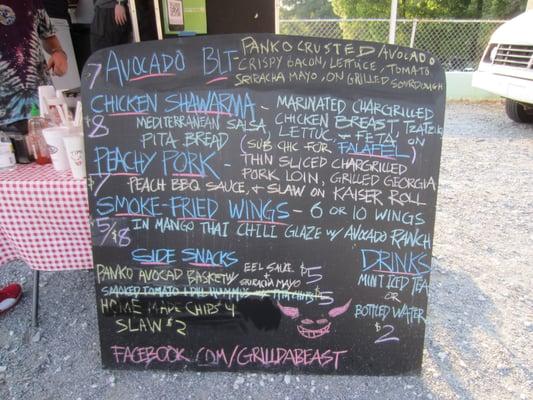 7 AVOCADO BLT - PANKO CRUSTED AVOCADO
CRISPY BACON, LETTUCE, TOMATO
SRIRACHA MAYO, ON GRILLED SOURDOUGH
CHICKEN SHAWARMA - MARINATED CHARGRILLED
$8 MEDITERRANEAN SALSA, CHICKEN BREAST, TZATZIKI
LETTUC - FETA, ON
PITA BREAD (SUB CHIC FOR FALAFEL)
PEACHY PORK - THIN SLICED CHARGRILLED
$7 PORK LOIN, GRILLED GEORGIA
PEACH BBQ SAUCE, & SLAW ON KAISER ROLL
SMOKE-FRIED WINGS - 6 OR 10 WINGS
$5/$8 IN MANGO THAI CHILI GLAZE W/ AVOCADO RANCH
SIDE SNACKS
PANKO AVOCAD BASKET W/ EEL SAUCE $5
SRIRACHA MAYO
SMOKED TOMATO HUMMUS $5
HOME MADE CHIPS 4
SLAW $2
DRINKS
MINT ICED TEA
OR
BOTTLED WATER
$2
FACEBOOK.COM/GRILLDABEAST